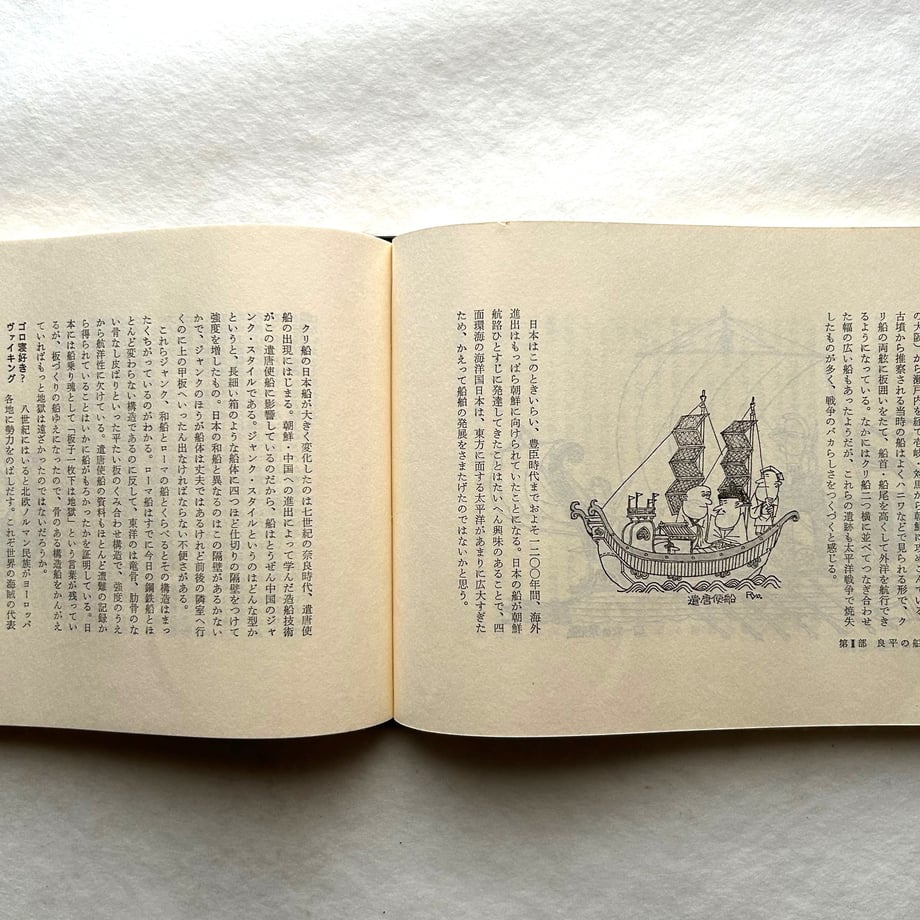 の大阪）から瀬戸内
古墳から推察される当時の船はよくハニワなどで見られる形で、ク
リ船の両舷に板囲いをたて、船首・船尾を高くして外洋を航行でき
るようになっている。なかにはクリ船二つ横に並べてつなぎ合わせ
た幅の広い船もあったようだが、これらの遺跡も太平洋戦争で焼失
したものが多く、戦争のバカらしさをつくづくと感じる。
第Ⅰ部 良平の船
遣唐使船
Ryo.
日本はこのときいらい、豊臣時代までおよそ一二〇〇年間、海外
進出はもっぱら朝鮮に向けられていたことになる。日本の船が朝鮮
航路ひとすじに発達してきたことはたいへん興味のあることで、四
面環海の海洋国日本は、東方に面する太平洋があまりに広大すぎた
ため、かえって船舶の発展をさまたげたのではないかと思う。
クリ船の日本船が大きく変化したのは七世紀の奈良時代、遣唐使
船の出現にはじまる。朝鮮・中国への進出によって学んだ造船技術
がこの遣唐使船に影響しているのだから、船はとうぜん中国のジャ
ンク・スタイルである。ジャンク・スタイルというのはどんな型か
というと、長細い箱のような船体に四つほど仕切りの隔壁をつけて
強度を増したもの。日本の和船と異なるのはこの隔壁があるかない
かで、ジャンクのほうが船体は丈夫ではあるけれど前後の隣室へ行
くのに上の甲板へいったん出なければならない不便さがある。
これらジャンク、和船とローマの船とくらべるとその構造はまっ
たくちがっているのがわかる。ローマ船はすでに今日の鋼鉄船とほ
とんど変わらない構造であるのに反し、東洋のは竜骨、肋骨のな
い骨なし皮ばりといった平たい板のくみ合わせ構造で、強度のうえ
から航洋性に欠けている。遣唐使船の資料もほとんど遭難の記録か
ら得られていることはいかに船がもろかったかを証明している。日
本には船乗り魂として「板子一枚下は地獄」という言葉が残ってい
るが、板づくりの船ゆえになったので、骨のある構造船をかんがえ
ていればもっと地獄は遠ざかったのではないだろうか。
ゴロ寝好き？
ヴァイキング
八世紀にはいると北欧ノルマン民族がヨーロッパ
各地に勢力をのばしだす。これぞ世界の海賊の代表